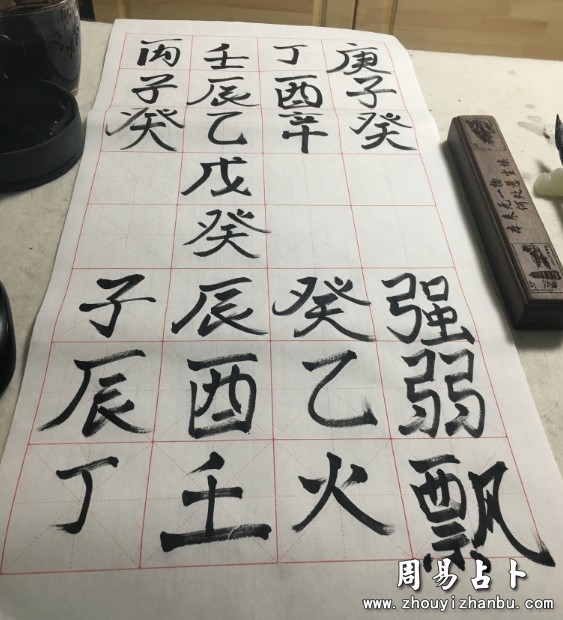 丙壬丁庚
子辰酉子
癸乙辛癸
戊
癸
子辰癸强
辰酉乙弱
丁壬火飘
周易占卜
www.zhouyizhanbu.com